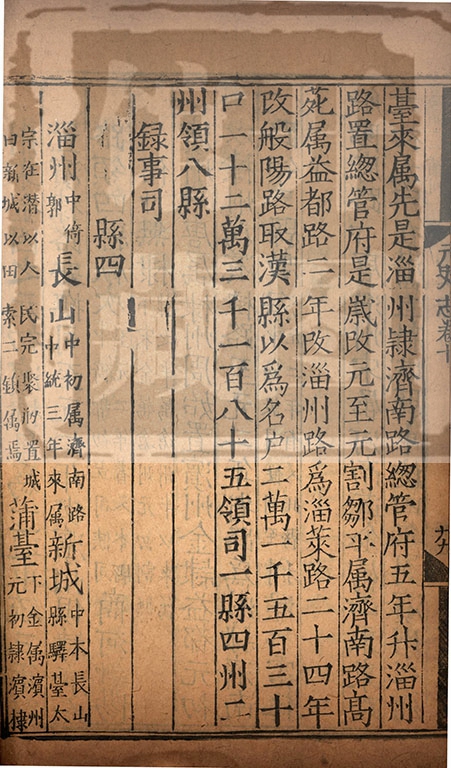 臺來属先是淄州隷濟南路總管府五年升淄州
路置總管府是嵗改元至元割鄒平属濟南路髙
苑属益都路二年改淄州路爲淄萊路二十四年
改般陽路取漢縣以爲名户二萬一千五百三十
口一十二萬三千一百八十五領司一縣四州二
州領八縣
録事司
縣四
淄州中倚郭長山中初属濟南路中統三年來属新城中本長山縣驛臺太
宗在潜以人民完聚創置城曰新城以田索二鎮属焉蒲臺下金属濱州元初隷濱棣
元史志卷十
十九